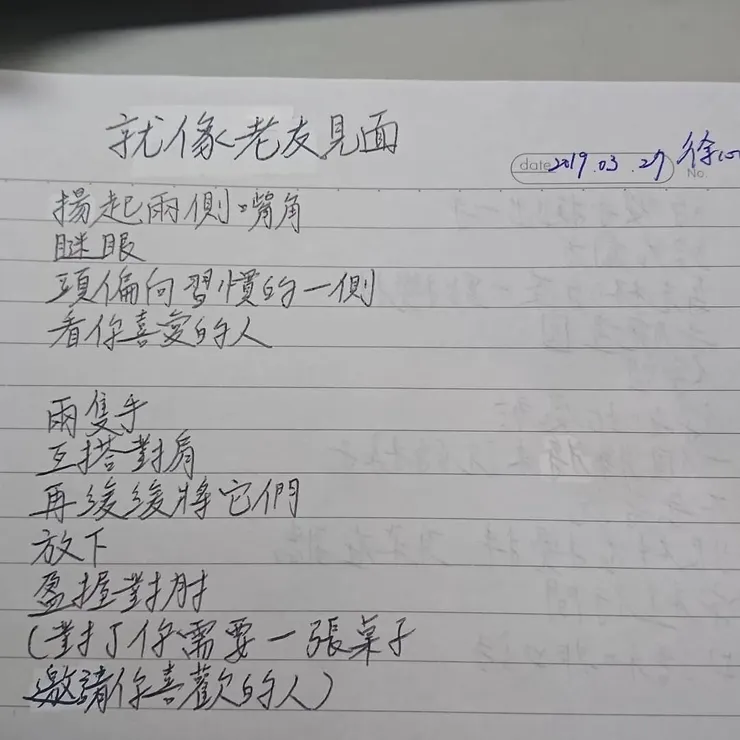 就像老友見面
date 2019.03.27 徐
No.
揚起兩側嘴角
瞇眼
頭偏向習慣的一側
看你喜愛的人
兩隻手
互搭對肩
再緩緩將它們
放下
盈握對肘
(對了你需要一張桌子
邀請你喜歡的人)